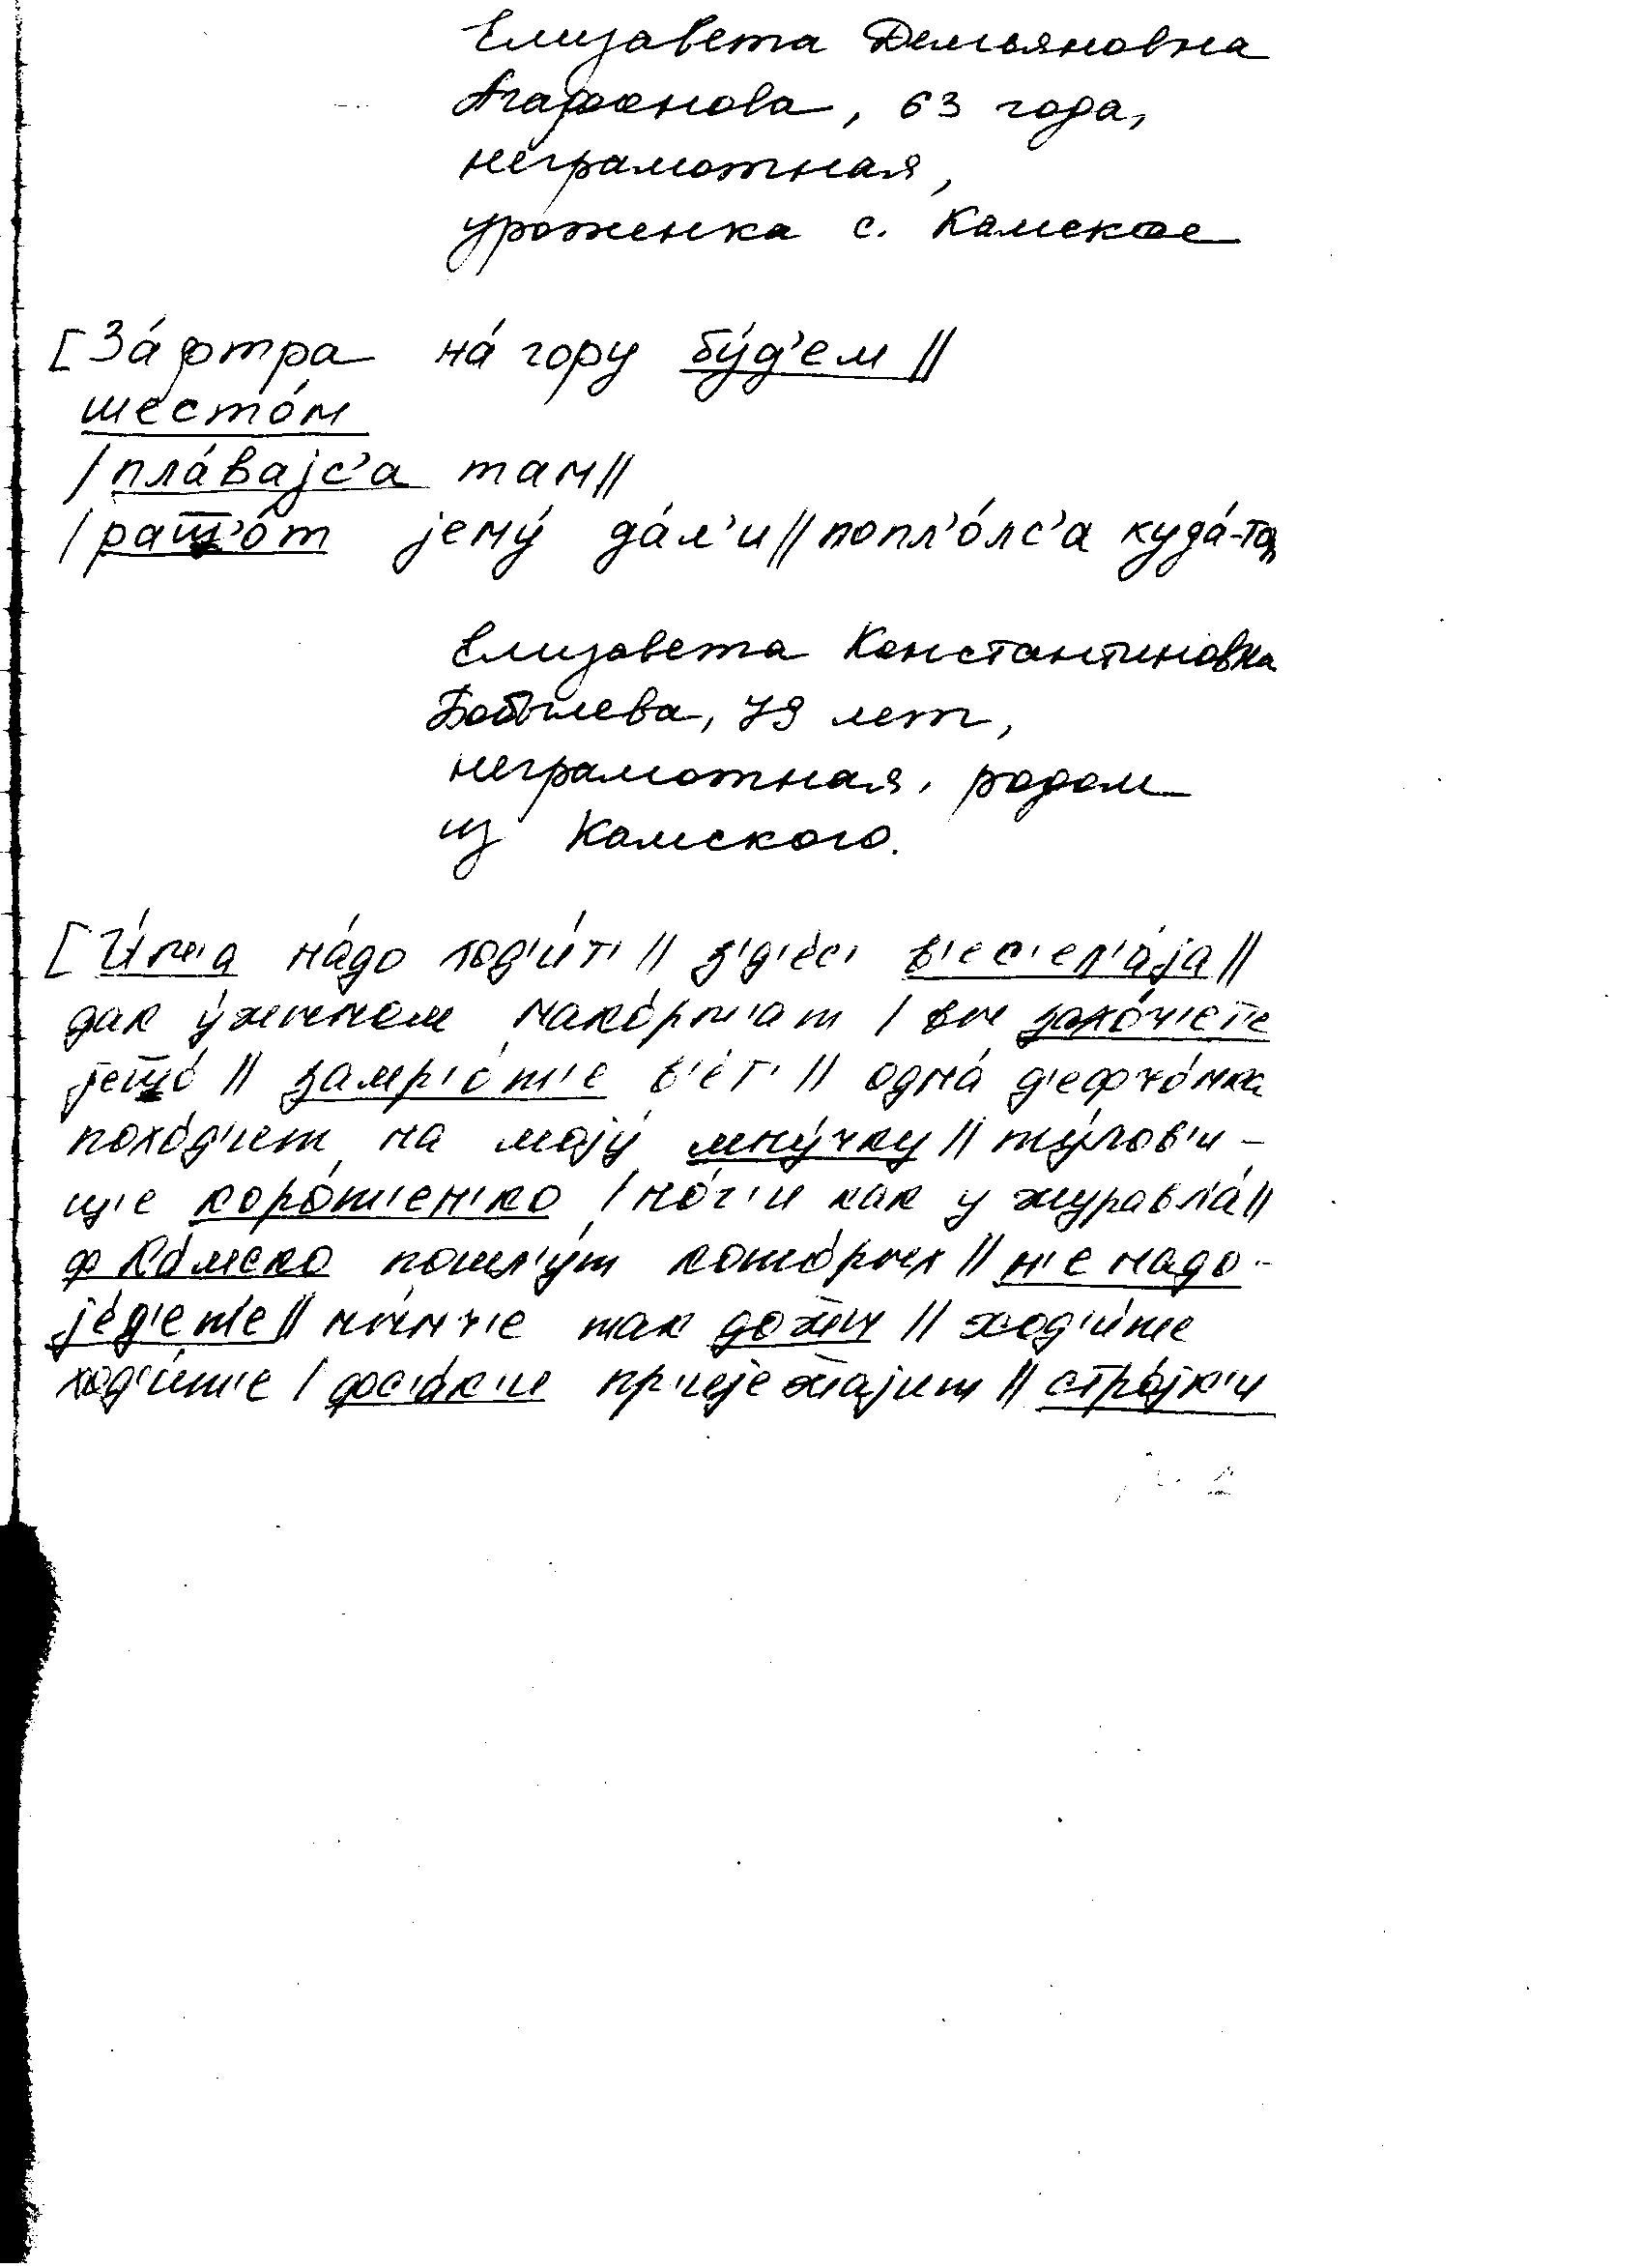 Елизавета Демьяновна
Агафонова, 63 года,
неграмотная,
уроженка с. Камское
[За́фтра на́ гору бу́д'ем //
шесто́м
/ пла́вајс'а там //
/ рашш'о́т јему́ да́л'и // попл'о́лс'а куда́-то
Елизавета Константиновна
Бобылева, 79 лет,
неграмотная, родом
из Камского.
[И́м'а на́до год'и́т' // з'д'е́с' в'ес'ел'а́ја //
дак у́жыном нако́рм'ат / вы захо́ч'ет'е
јешшо́ // замр'о́т'е в'е́т' // одна́ д'ефчо́нка
похо́д'ит на мају́ мну́чку // ту́лов'и-
щ'е коро́т'ен'ко / но́г'и как у журавл'а́ //
ф Ка́мско пошл'у́т кото́рых // н'е надо-
је́д'ет'е // ны́нч'е так дожжы́ // ход'и́т'е
ход'и́т'е / фс'а́к'и пр'ијежжајит // стро́јк'и